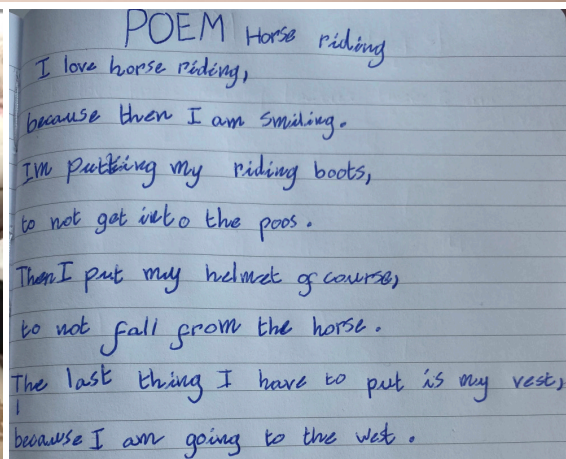 POEM Horse riding
I love horse riding,
because then I am smiling.
Im putting my riding boots,
to not get into the poos.
Then I put my helmet of course,
to not fall from the horse.
The last thing I have to put is my vest,
because I am going to the west.